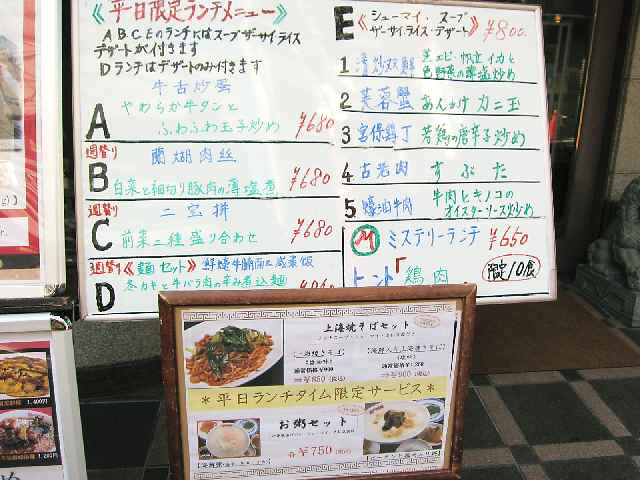 《平日限定ランチメニュー》
ABCEのランチにはスープザーサイライス
デザートが付きます
Dランチはデザートのみ付きます
牛舌炒蛋
A やわらか牛タンと
ふわふわ玉子炒め ¥680
週替り 蘭湖肉丝
B 白菜と細切り豚肉の薄塩煮 ¥680
週替り 二宝拼
C 前菜二種盛り合わせ ¥680
週替り《麺セット》
D 冬カキと牛バラ肉の辛み煮込麺
E 《シューマイ・スープ
ザーサイ・ライス・デザート》 ¥800
1 清炒双鮮 芝エビ・帆立イカと
色野菜の薄塩炒め
2 芙蓉蟹 あんかけカニ玉
3 宮保鶏丁 若鶏の唐辛子炒め
4 古老肉 すぶた
5 蠔油牛肉 牛肉とキノコの
オイスターソース炒め
M ミステリーランチ ¥650
ヒント「鶏肉 限定10食
上海焼そばセット
¥850(税込)
¥900(税込)
*平日ランチタイム限定サービス*
お粥セット
¥750(税込)
1,400円
1,200円